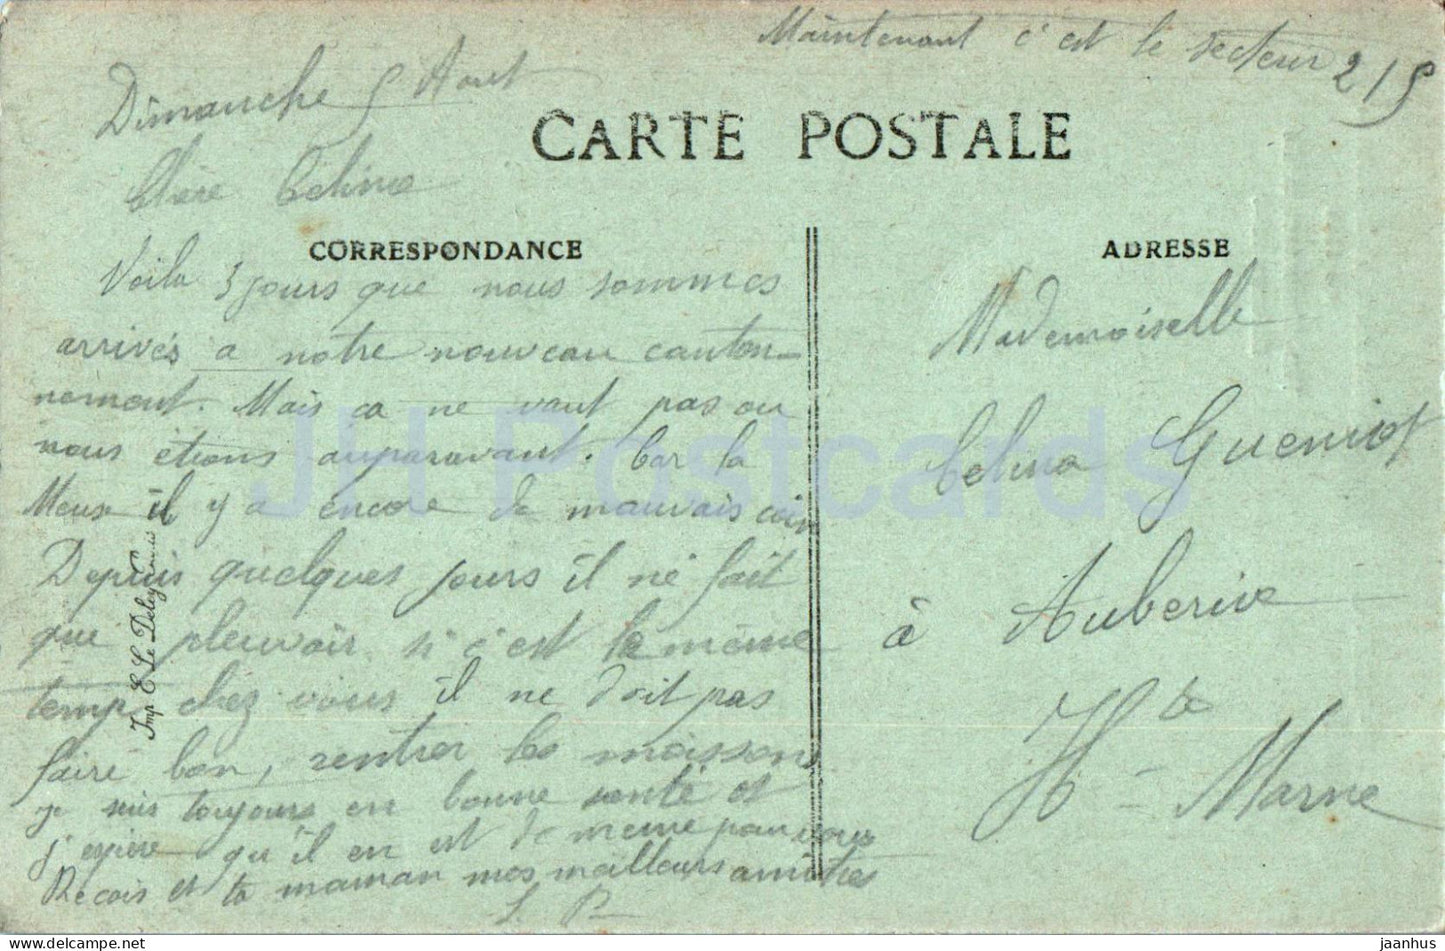 Maintenant c'est le secteur 215
Dimanche 5 Aout
CARTE POSTALE
Chère Celina
CORRESPONDANCE
ADRESSE
Voila 3 jours que nous sommes
arrivés a notre nouveau canton-
nement. Mais ca ne vaut pas ou
nous étions auparavant. Car la
Meuse il y a encore de mauvais coin
Depuis quelques jours il ne fait
que pleuvoir si c'est le même
temps chez vous il ne doit pas
faire bon, rentrer les moissons
je suis toujours en bonne santé et
j'espère qu'il en est de meme pour vous
Recois et ta maman mes meilleurs amitiés
L. P.
Mademoiselle
Celina Gueniot
à Auberive
Hte - Marne
Imp. E. Le Deley
JH Postcards
jaanhus